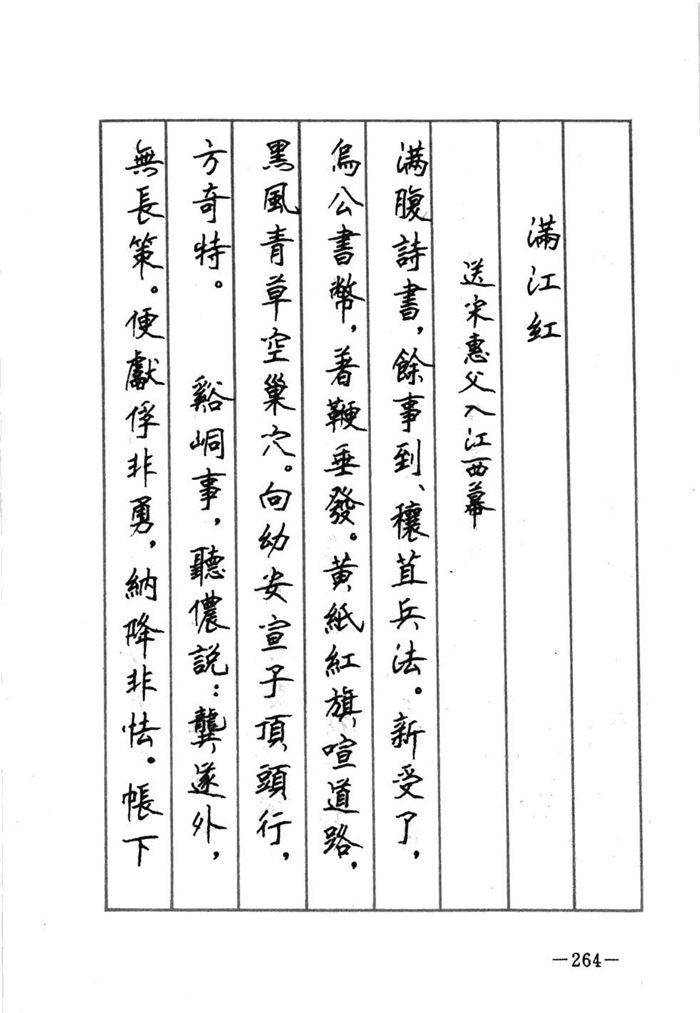 满江红
送宋惠父入江西幕
满腹詩書，餘事到、穰苴兵法。新受了，
烏公書幣，著鞭垂發。黄紙紅旗喧道路，
黑風青草空巢穴。向幼安宣子頂頭行，
方奇特。　谿峒事，聽儂説：龔遂外，
無長策。便獻俘非勇，納降非怯。帳下
—264—